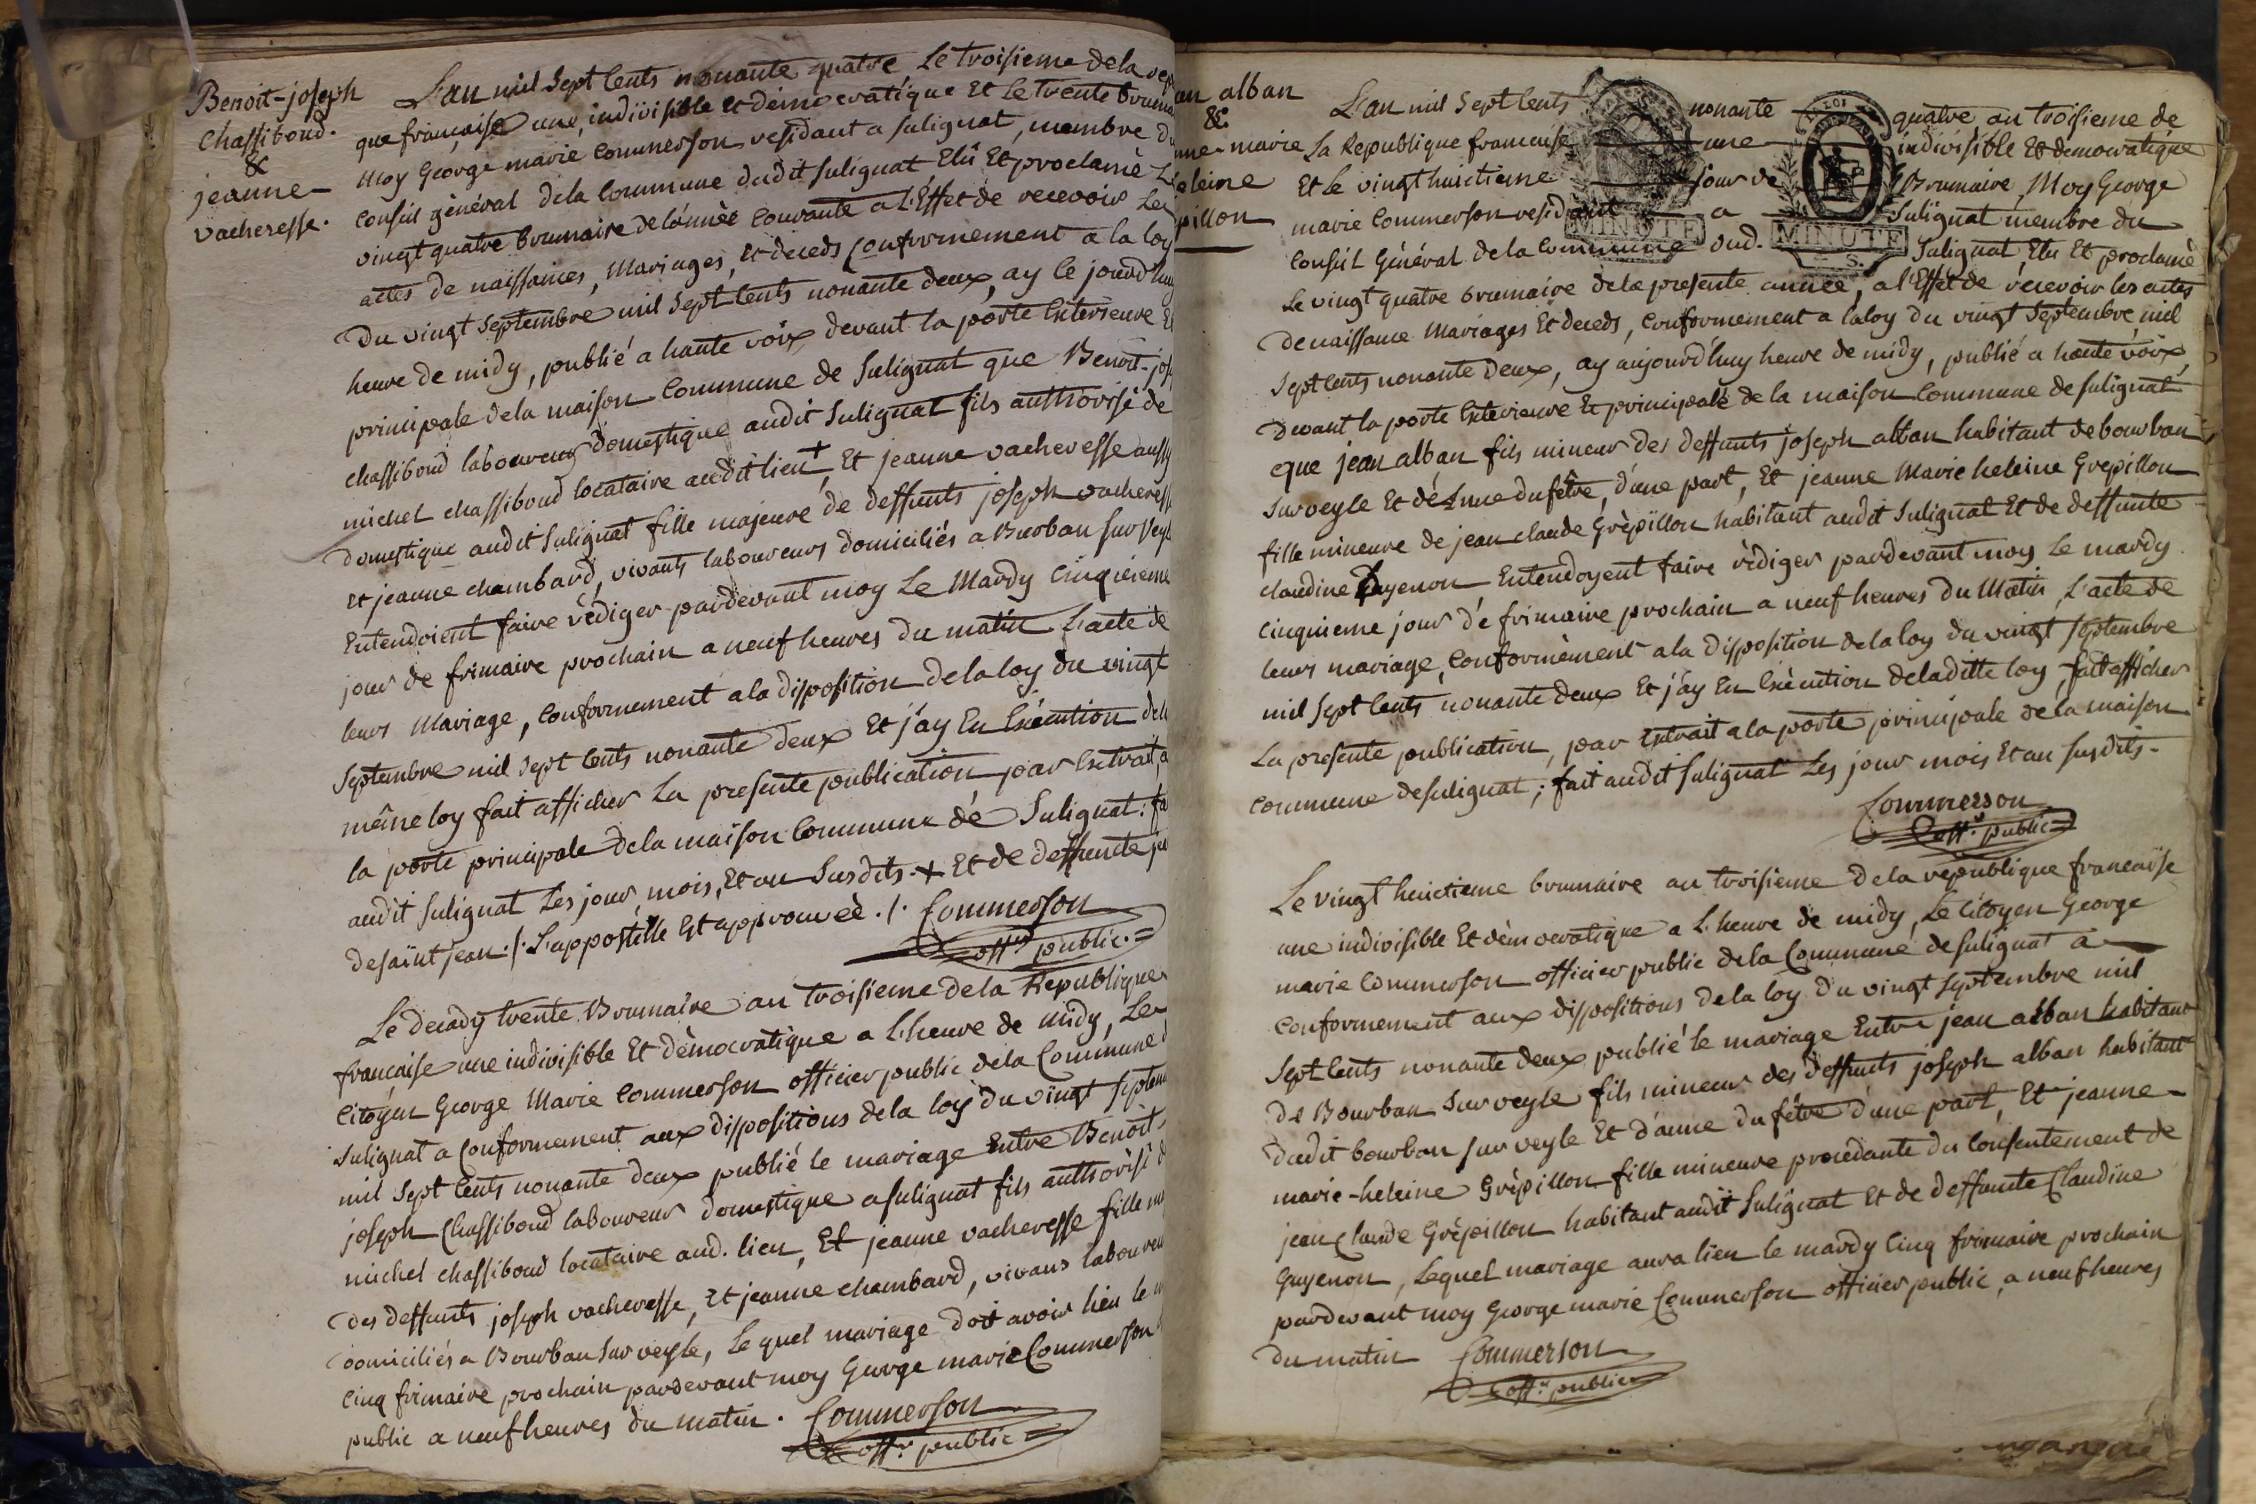 Benoit-joseph
Chassiboud.
&
jeanne
vacheresse.
L'an mil Sept Cents nonante quatre Le troisieme de la rep
que française une, indivisible et démocratique Et Le trente bruma
Moy George marie Commerson residant a sulignat, membre du
Conseil général de la Commune dudit sulignat Elû Et proclamé Le
vingt quatre brumaire de l'année Courante a L'Effet de recevoir Les
actes de naissances, Mariages, et deceds Conformement a la loy
Du vingt septembre mil Sept Cents nonante deux, ay le jourd'huy
heure de midy, publié a haute voix devant la porte Exterieure Et
principale de la maison Commune de Sulignat que Benoit-jos
chassiboud laboureur domestique audit Sulignat fils authorisé de
michel chassiboud locataire audit lieu + Et jeanne vacheresse aussy
domestique audit sulignat fille majeure de deffunts joseph vacheress
et jeanne chambard, vivants laboureurs domiciliés a Burban sur veyl
Entendoient faire rédiger pardevant moy Le Mardy Cinquieme
jour de frimaire prochain a neuf heures du matin L'acte de
leurs Mariage, Conformement a la disposition de la loy du vingt
Septembre mil Sept Cents nonante deux Et j'ay En Exécution de la
même loy fait afficher La presente publication par Extrait, a
la porte principale de la maison Commune dé Sulignat: fa
audit sulignat Les jour, mois, Et an Susdits. + Et de deffunte je
desaint jean ./. L'appostille Est approuvée ./. Commerson
offr. public.=
Le decady trente Brumaire an troisieme de la Republique
française une indivisible Et démocratique a L'heure de midy, Le
Citoyen George Marie Commerson officier public de la Commune d
sulignat a Conformement aux dispositions de la loy du vingt septem
mil Sept Cents nonante deux publié le mariage Entre Benoit
joseph Chassiboud laboureur domestique a sulignat fils authorisé d
michel chassiboud locataire aud. lieu, Et jeanne vacheresse fille ma
des deffunts joseph vacheresse, Et jeanne chambard, vivans laboureu
domiciliés a Bourban sur veyle, Le quel mariage doit avoir lieu le m
Cinq frimaire prochain pardevant moy George marie Commerson
public a neuf heures du matin. Commerson
offr. public=
an alban
&.
nne-marie
eleine
pillon
L'an mil Sept Cents nonante quatre an troisieme de
La Republique francaise une indivisible Et democratique
Et le vingt huictieme jour de Brumaire, Moy George
marie Commerson residant a Sulignat membre du
MINUTE
MINUTE
Conseil Général de la Commune dud. Sulignat, Elu Et proclamé
Le vingt quatre brumaire de la presente année, a l'Effet de recevoir les actes
de naissance Mariages Et deceds, Conformement a la loy du vingt Septembre mil
Sept Cents nonante deux, ay aujourd'huy heure de midy, publié a haute voix,
devant la porte Exterieure Et principale de la maison Commune de sulignat
que jean alban fils mineur des deffunts joseph alban habitant de bourban
sur veyle Et dé Anne dufêtre, d'une part, Et jeanne Marie heleine Grepillon
fille mineure de jean claude Grépillon habitant audit sulignat Et de deffunte
claudine Guyenon, Entendoyent faire rédiger pardevant moy Le mardy
cinquieme jour dé frimaire prochain a neuf heures du Matin, L'acte de
leurs mariage, Conformément a la disposition de la loy du vingt septembre
mil sept Cents nonante deux Et j'ay En Exécution de la ditte loy, fait afficher
La presente publication, par Extrait a la porte principale de la maison
commune de sulignat; fait audit sulignat Les jour mois Et an susdits.
Commerson
offr. public=
Le vingt huictieme brumaire an troisieme de la republique francaise
une indivisible Et démocratique a L'heure de midy, Le Citoyen George
marie Commerson officier public de la Commune de sulignat a
conformement aux dispositions de la loy du vingt septembre mil
Sept Cents nonante deux publié le mariage Entre jean alban habitant
de Bourban sur veyle fils mineur des deffunts joseph alban habitant
dudit bourban sur veyle Et d'anne dufêtre d'une part, Et jeanne
marie-heleine Grépillon fille mineure procedante du Consentement de
jean Claude Grépillon habitant audit Sulignat Et de deffunte Claudine
Guyenon, Lequel mariage aura lieu le mardy Cinq frimaire prochain
pardevant moy George marie Commerson officier public, a neuf heures
du matin Commerson
offr. public